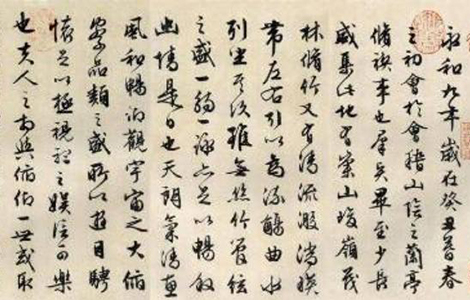 永和九年歲在癸丑暮春
之初會於會稽山陰之蘭亭
脩禊事也羣賢畢至少長
咸集此地有崇山峻嶺茂
林脩竹又有清流激湍映
帶左右引以為流觴曲水
列坐其次雖無絲竹管絃
之盛一觴一詠亦足以暢敘
幽情是日也天朗氣清惠
風和暢仰觀宇宙之大俯
察品類之盛所以遊目騁
懷足以極視聽之娛信可樂
也夫人之相與俯仰一世或取